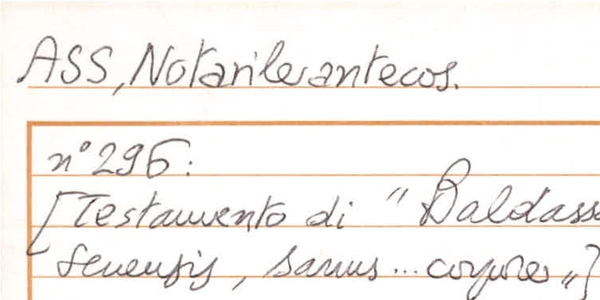 ASS, Notarile antecos.
n° 296:
[Testamento di "Baldass
senensis, sanus... corpore"]